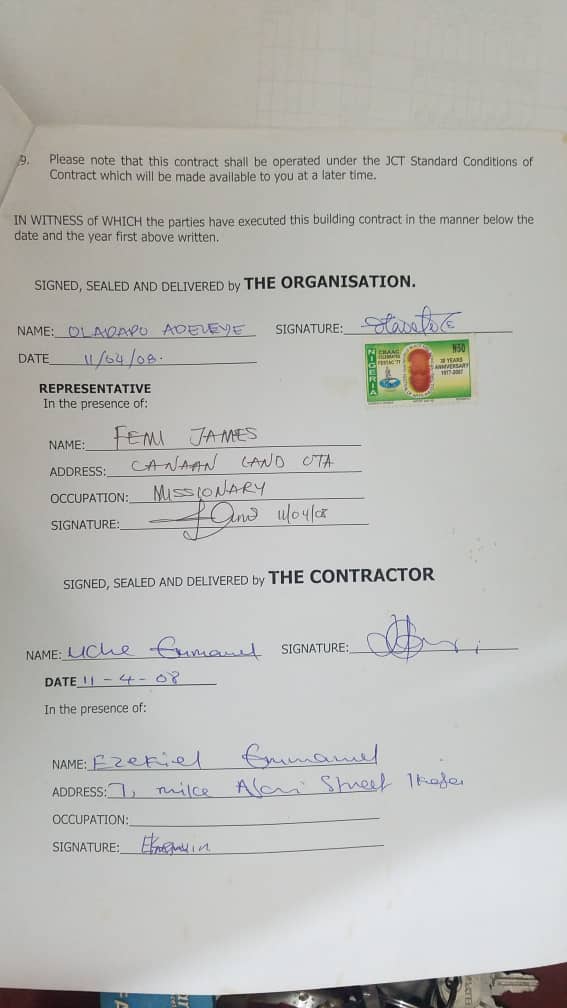 9. Please note that this contract shall be operated under the JCT Standard Conditions of
Contract which will be made available to you at a later time.
IN WITNESS of WHICH the parties have executed this building contract in the manner below the
date and the year first above written.
SIGNED, SEALED AND DELIVERED by THE ORGANISATION.
NAME: OLADAPO ADELEYE SIGNATURE:
DATE 11/04/08.
NIGERIA
N50
30 YEARS
ANNIVERSARY
1977-2007
REPRESENTATIVE
In the presence of:
NAME: FEMI JAMES
ADDRESS: CANAAN LAND OTA
OCCUPATION: MISSIONARY
SIGNATURE: 11/04/08
SIGNED, SEALED AND DELIVERED by THE CONTRACTOR
NAME: Uche Emmanuel SIGNATURE:
DATE 11-4-08
In the presence of:
NAME: Ezekiel Emmanuel
ADDRESS: 7, Street Ikeja
OCCUPATION:
SIGNATURE: